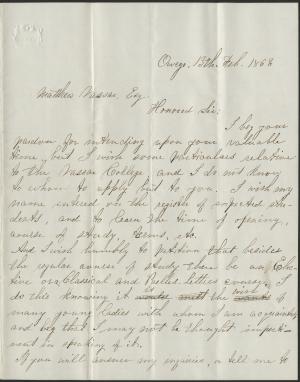 Owego, 13th. Feb. 1863
Matthew Vassar, Esq.
Honored Sir:
I beg your
pardon for intruding upon your valuable
time, but I wish some particulars relative
to the Vassar College and I do not know
to whom to apply but to you. I wish my
name entered on the register of expected stu-
dents, and to learn the time of opening,
course of study, terms, etc.
And I wish humbly to petition that besides
the regular course of study there be an Elec-
tive or Classical and belles lettres course. I
do this knowing it is the wish of
many young ladies with whom I am acquainted
and beg that I may not be thought imperti-
nent in speaking of it.
If you will answer my inquiries, or tell me to